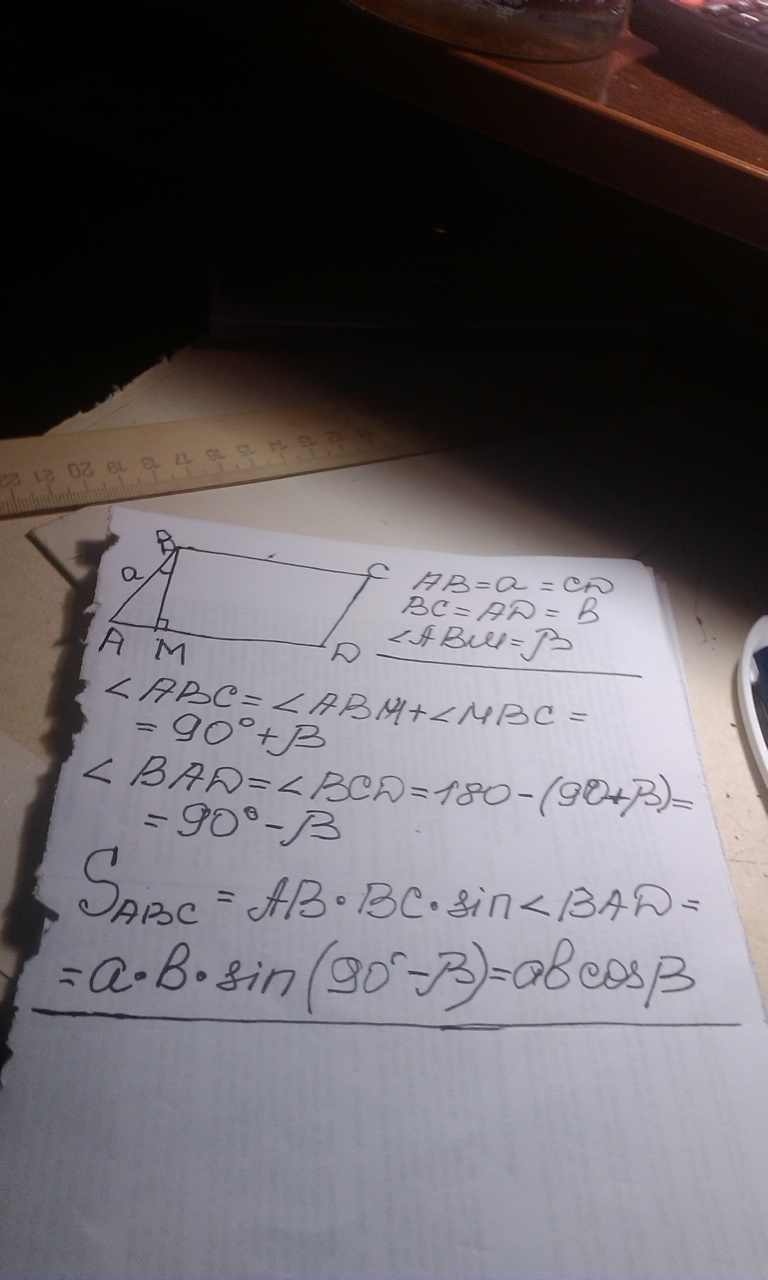 22 21 20 19 18 17 16 15 14 13 12 11
B
a
C
A M D
AB = a = CD
BC = AD = в
∠ABM = β
∠ABC = ∠ABM + ∠MBC =
= 90° + β
∠BAD = ∠BCD = 180 - (90 + β) =
= 90° - β
S ABC = AB · BC · sin ∠BAD =
= a · в · sin (90° - β) = aв cos β